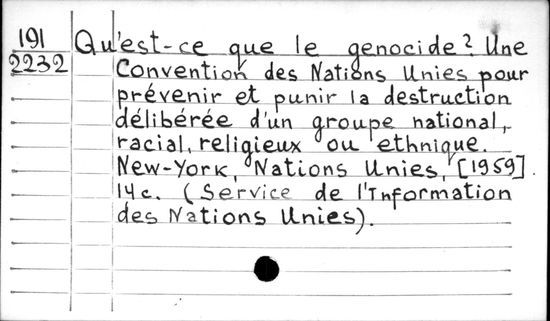 191 Qu'est-ce que le genocide? Une
2232 Convention des Nations Unies pour
prévenir et punir la destruction
délibérée d'un groupe national,
racial, religieux ou ethnique.
New-York, Nations Unies, [1959].
14c. (Service de l'Information
des Nations Unies).